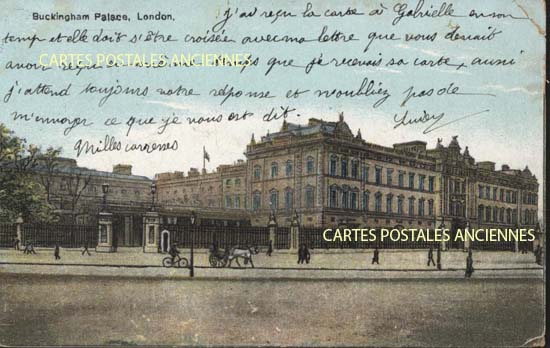 Buckingham Palace, London.
J'ai reçu la carte à Gabrielle en son
temps et elle doit s'être croisée avec ma lettre que vous deviez
avoir reçu temps que je recevais sa carte, aussi
CARTES POSTALES ANCIENNES
j'attend toujours votre réponse et n'oubliez pas de
m'envoyer ce que je vous est dit.
Milles caresses
CARTES POSTALES ANCIENNES